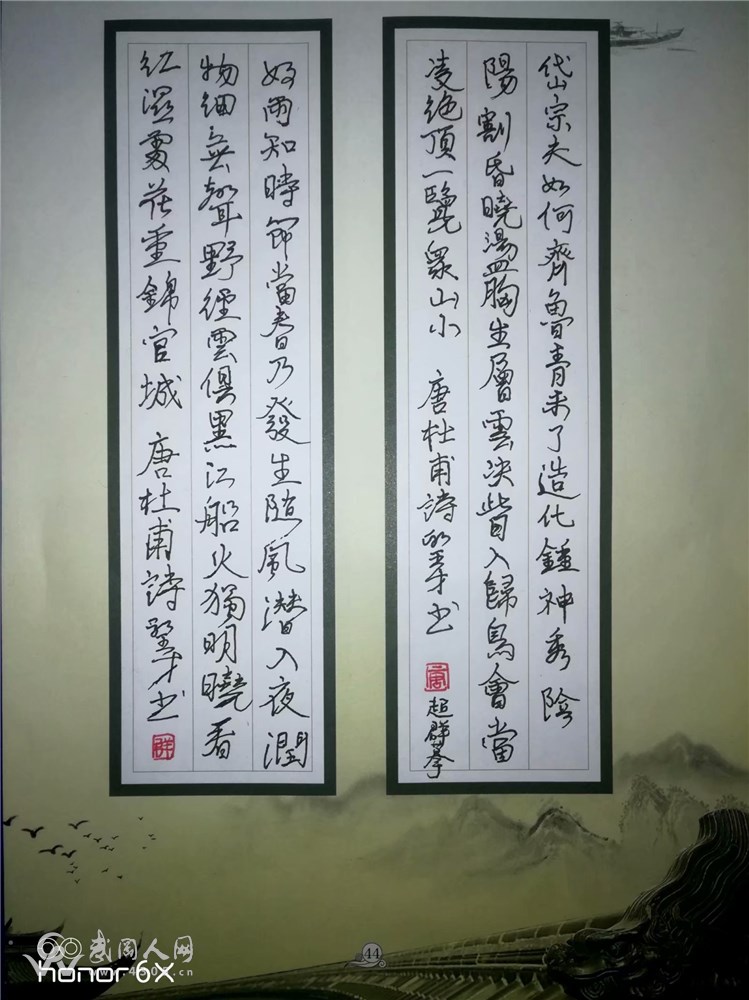 岱宗夫如何齊魯青未了造化鍾神秀陰
陽割昏曉湯皿胸生層雲決眥入歸鳥會當
凌絶頂一覽眾山小 唐杜甫詩 書
超群摹
好雨知時節當春乃發生隨風潛入夜潤
物細無聲野徑雲俱黑江船火獨明曉看
紅濕處花重錦官城 唐杜甫詩 書
44
武冈人网
honor 6X